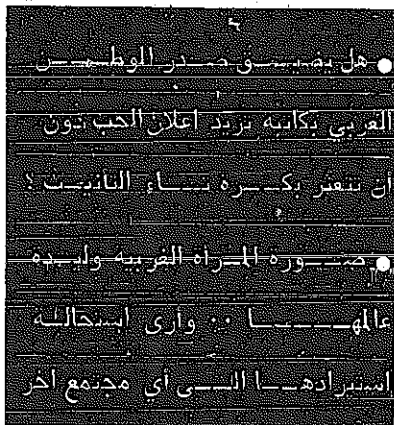 ● هل يضيـق صـدر الوطـن
العربي بكاتبه تريد اعلان الحب دون
أن تتعثر بكـرة تـاء التانيـث ؟
● صـورة المـرأة الغربيه وليـده
عالمهـا ٠٠ وأرى استحالـه
استيرادهـا الـى أي مجتمع اخر